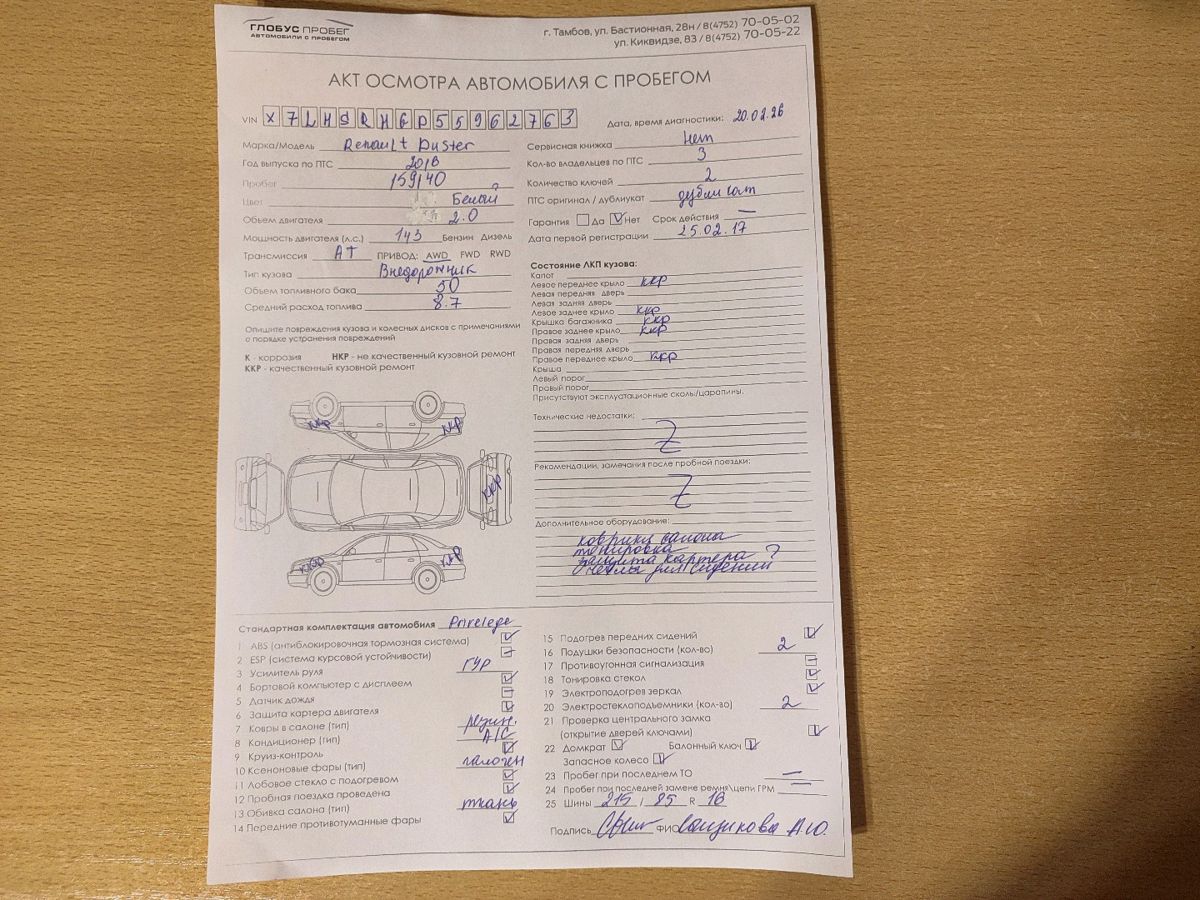 ГЛОБУС ПРОБЕГ
АВТОМОБИЛИ С ПРОБЕГОМ
г. Тамбов, ул. Бастионная, 28н / 8(4752) 70-05-02
ул. Киквидзе, 83 / 8(4752) 70-05-22
АКТ ОСМОТРА АВТОМОБИЛЯ С ПРОБЕГОМ
VIN X7LHSRHGP55962763
Дата, время диагностики: 20.02.26
Марка/Модель Renault Duster
Год выпуска по ПТС 2016
Пробег 159140
Цвет Белый
Объем двигателя 2.0
Мощность двигателя (л.с.) 143 Бензин Дизель
Трансмиссия АТ ПРИВОД: AWD FWD RWD
Тип кузова Внедорожник
Объем топливного бака 50
Средний расход топлива 8.7
Сервисная книжка Нет
Кол-во владельцев по ПТС 3
Количество ключей 2
ПТС оригинал / дубликат дубликат
Гарантия Да Нет Срок действия —
Дата первой регистрации 25.02.17
Опишите повреждения кузова и колесных дисков с примечаниями
о порядке устранения повреждений
К - коррозия НКР - не качественный кузовной ремонт
ККР - качественный кузовной ремонт
Состояние ЛКП кузова:
Капот
Левое переднее крыло ккр
Левая передняя дверь
Левая задняя дверь
Левое заднее крыло ккр
Крышка багажника ккр
Правое заднее крыло ккр
Правая задняя дверь
Правая передняя дверь
Правое переднее крыло ккр
Крыша
Левый порог
Правый порог
Присутствуют эксплуатационные сколы/царапины.
ккр ккр
ккр
ккр ккр
Технические недостатки:
Z
Рекомендации, замечания после пробной поездки:
Z
Дополнительное оборудование:
коврики салона
тонировка
защита картера
чехлы для сидений
Стандартная комплектация автомобиля Privelege
1 ABS (антиблокировочная тормозная система)
2 ESP (система курсовой устойчивости)
3 Усилитель руля ГУР
4 Бортовой компьютер с дисплеем
5 Датчик дождя
6 Защита картера двигателя
7 Ковры в салоне (тип) резин.
8 Кондиционер (тип) A/C
9 Круиз-контроль
10 Ксеноновые фары (тип) галоген
11 Лобовое стекло с подогревом
12 Пробная поездка проведена
13 Обивка салона (тип) ткань
14 Передние противотуманные фары
15 Подогрев передних сидений
16 Подушки безопасности (кол-во) 2
17 Противоугонная сигнализация
18 Тонировка стекол
19 Электроподогрев зеркал
20 Электростеклоподъемники (кол-во) 2
21 Проверка центрального замка
(открытие дверей ключами)
22 Домкрат Балонный ключ
Запасное колесо
23 Пробег при последнем ТО —
24 Пробег при последней замене ремня\цепи ГРМ —
25 Шины 215 / 85 R 16
Подпись ФИО А.Ю.